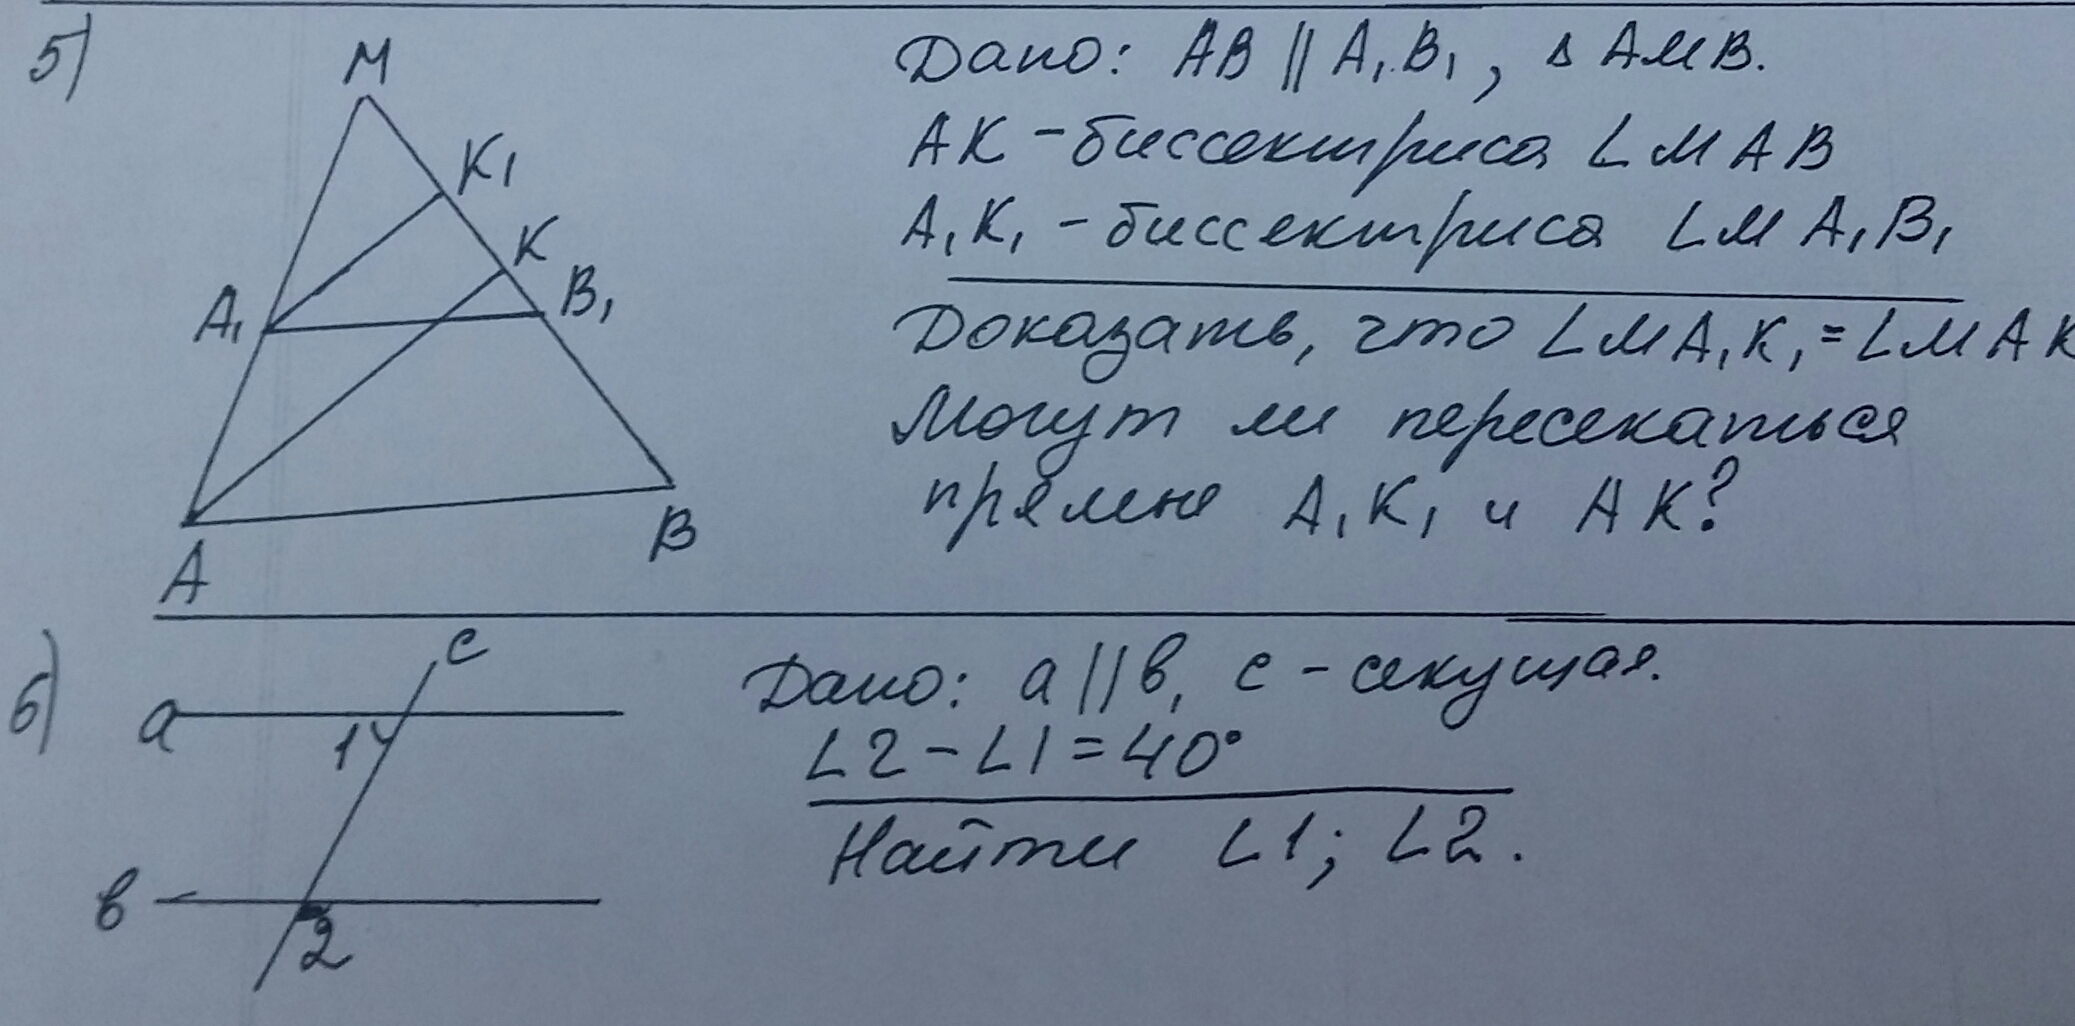 5)
M
K₁
K
A₁
B₁
A
B
Дано: AB || A₁B₁, Δ AMB.
AK - биссектриса ∠MAB
A₁K₁ - биссектриса ∠MA₁B₁
Доказать, что ∠MA₁K₁=∠MAK
Могут ли пересекаться
прямые A₁K₁ и AK?
6)
c
a
1
в
2
Дано: a||в, c - секущая.
∠2-∠1=40°
Найти ∠1; ∠2.